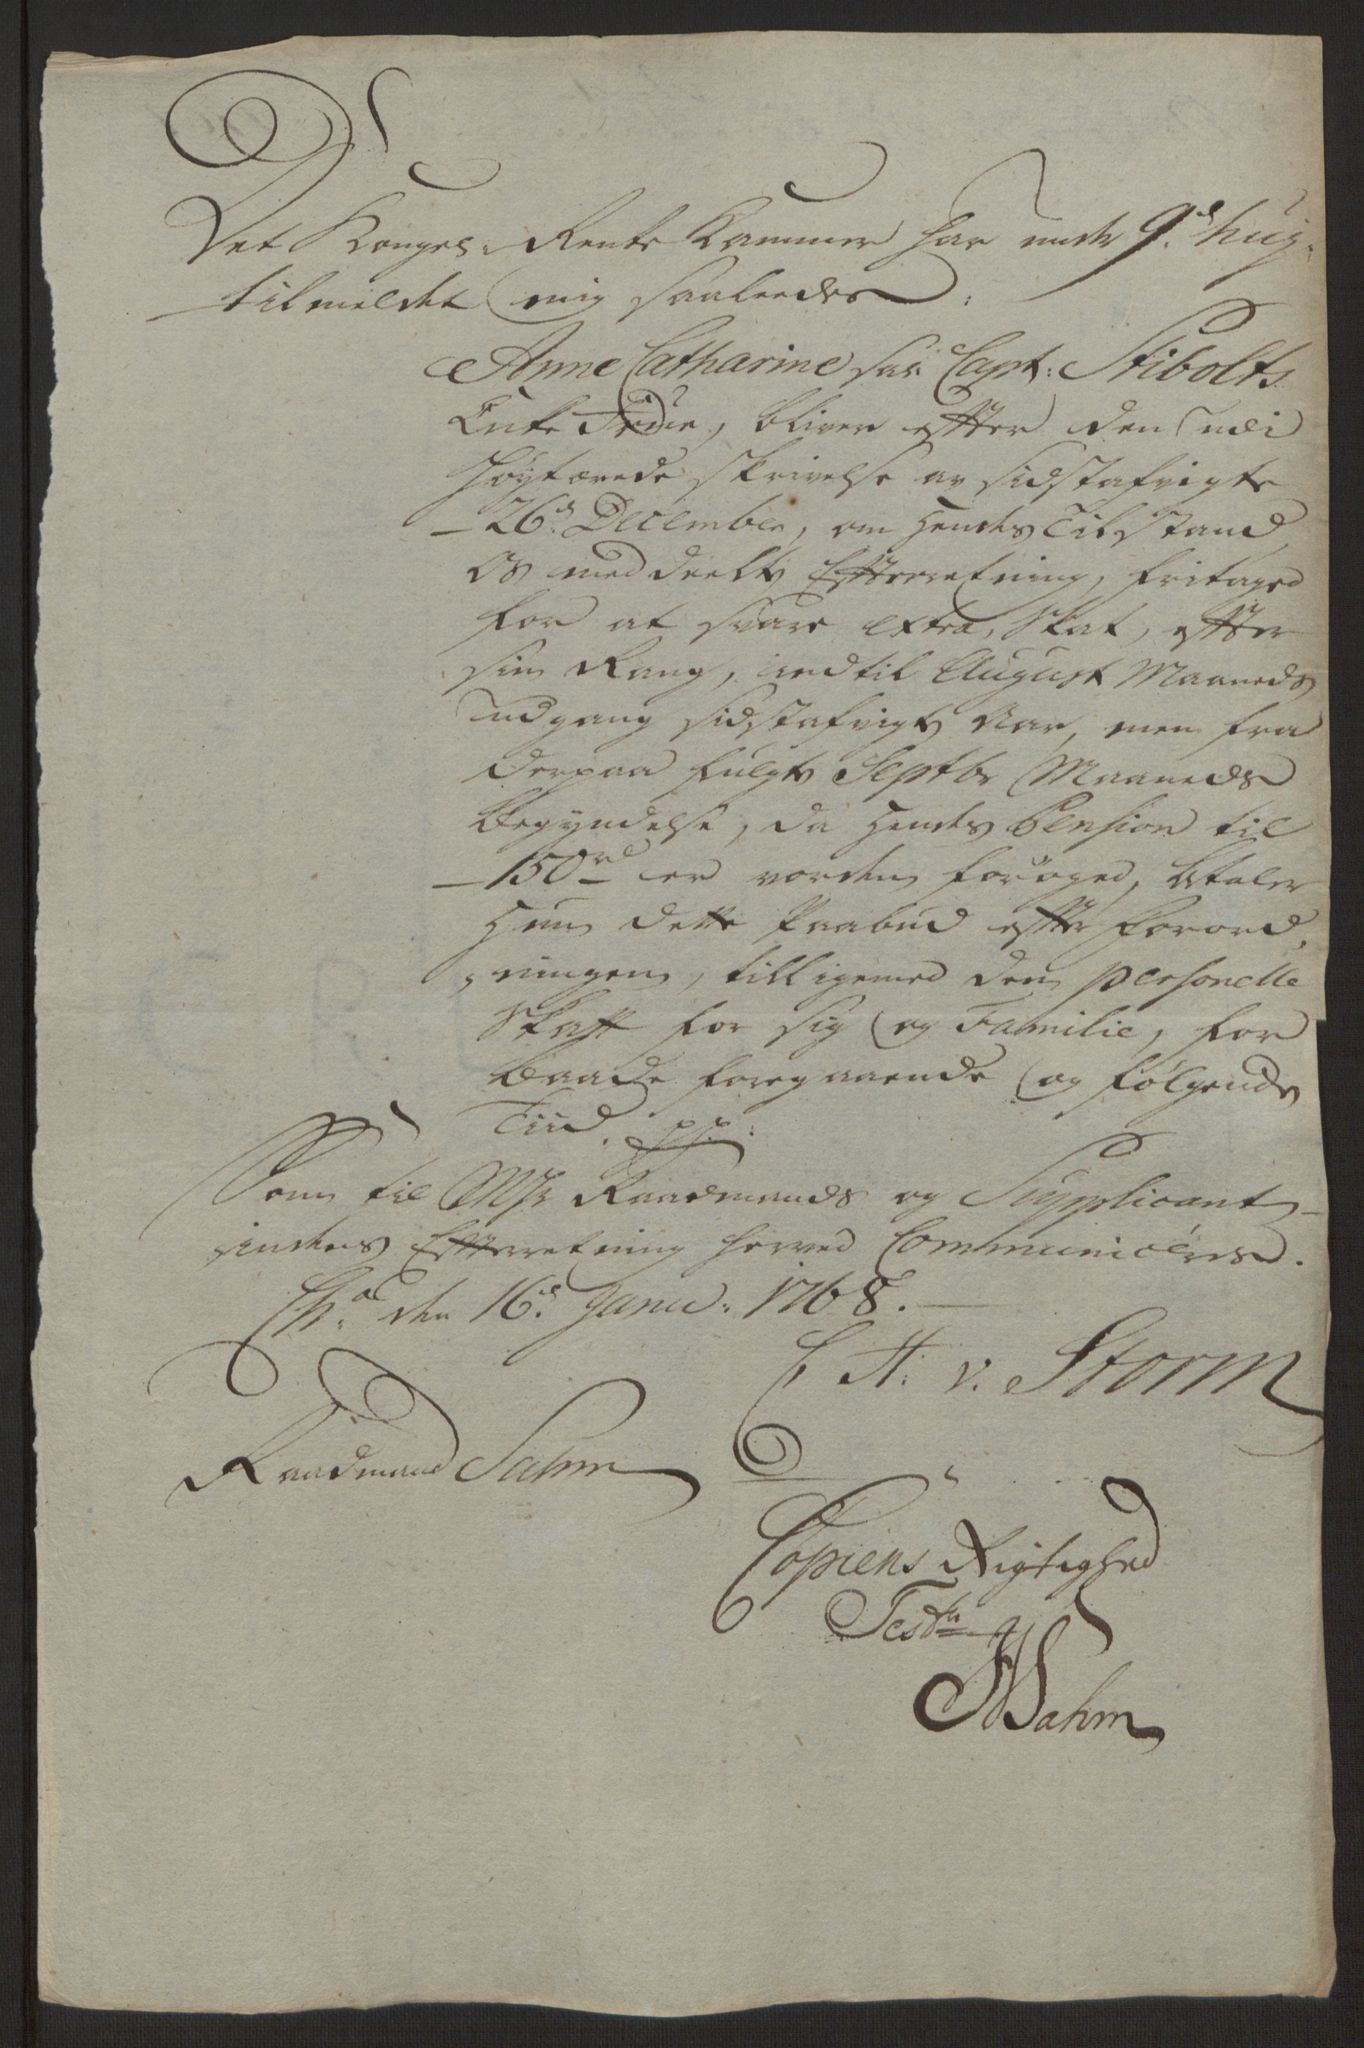 Det Kongel. Rente Kammer har under 9.de huj.
tilmeldet mig saaledes:
Anne Catharine sal: Capt: Stibolts
Enke Frue, bliver efter den udi
høytærede skrivelse av sidstafvigte
26.de December, om hendes Tilstand
os meddeelte Efterretning, fritaged
for at svare extra Skat, efter
sin Rang, indtil August Maaneds
udgang sidstafvigte Aar, men fra
derpaa fulgte Septbr Maaneds
Begyndelse, da hendes Pension til
150 rd er vorden forøged, betaler
hun dette Paabud efter Forord,
ningen, tilligemed den personelle
Skatt for sig og Familie, for
baade foregaaende og følgende
Tiid. pp:
Som til Hr Raadmands og Supplicant-
indens Efterretning herved Communiceres.
Ch.a den 16.de Janu: 1768.
C H: v. Storm
Raadmand Sahm
Copiens Rigtighed
Test:r
Sahm